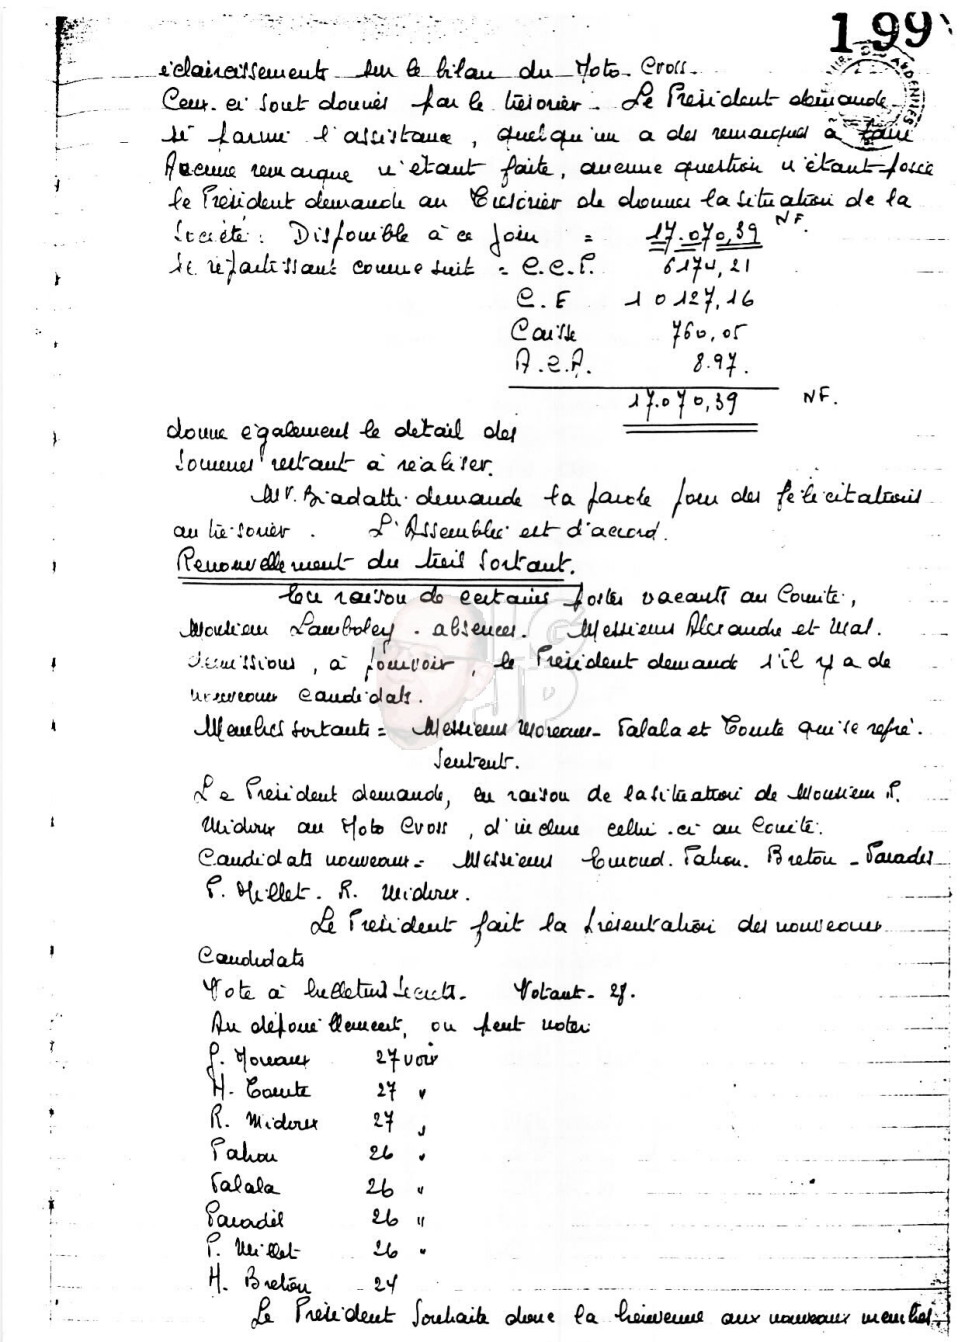 199
éclaircissements sur le bilan du Moto-Cross.
Ceux-ci sont donnés par le trésorier. Le Président demande
si parmi l'assistance, quelqu'un a des remarques à faire
Aucune remarque n'étant faite, aucune question n'étant posée
le Président demande au Trésorier de donner la situation de la
Société : Disponible à ce jour = 17.070,39 NF.
se répartissant comme suit = C.C.P. 6174,21
C.E 10127,16
Caisse 760,05
A.C.A. 8.97.
17.070,39 NF.
donne également le détail des
sommes restant à réaliser.
Mr. Biadatti demande la parole pour des félicitations
au trésorier. L'Assemblée est d'accord.
Renouvellement du tiers sortant.
En raison de certains postes vacants au Comité,
Monsieur Lamboley - absences. Messieurs Alexandre et Mal.
démissions, à pourvoir, le Président demande s'il y a de
nouveaux candidats.
Membres sortants = Messieurs Moreaux - Talala et Comte qui se repré-
sentent.
Le Président demande, en raison de la situation de Monsieur R.
Midoux au Moto Cross, d'inclure celui-ci au Comité.
Candidats nouveaux = Messieurs Emond. Pahon. Breton - Paradis
P. Millet. R. Midoux.
Le Président fait la présentation des nouveaux
Candidats
Vote à bulletins secrets. Votant - 28.
Au dépouillement, on peut noter
J. Moreaux 27 voix
H. Comte 27 "
R. Midoux 27 "
Pahon 26 "
Talala 26 "
Paradis 26 "
P. Millet 26 "
H. Breton 24
Le Président souhaite donc la bienvenue aux nouveaux membres.